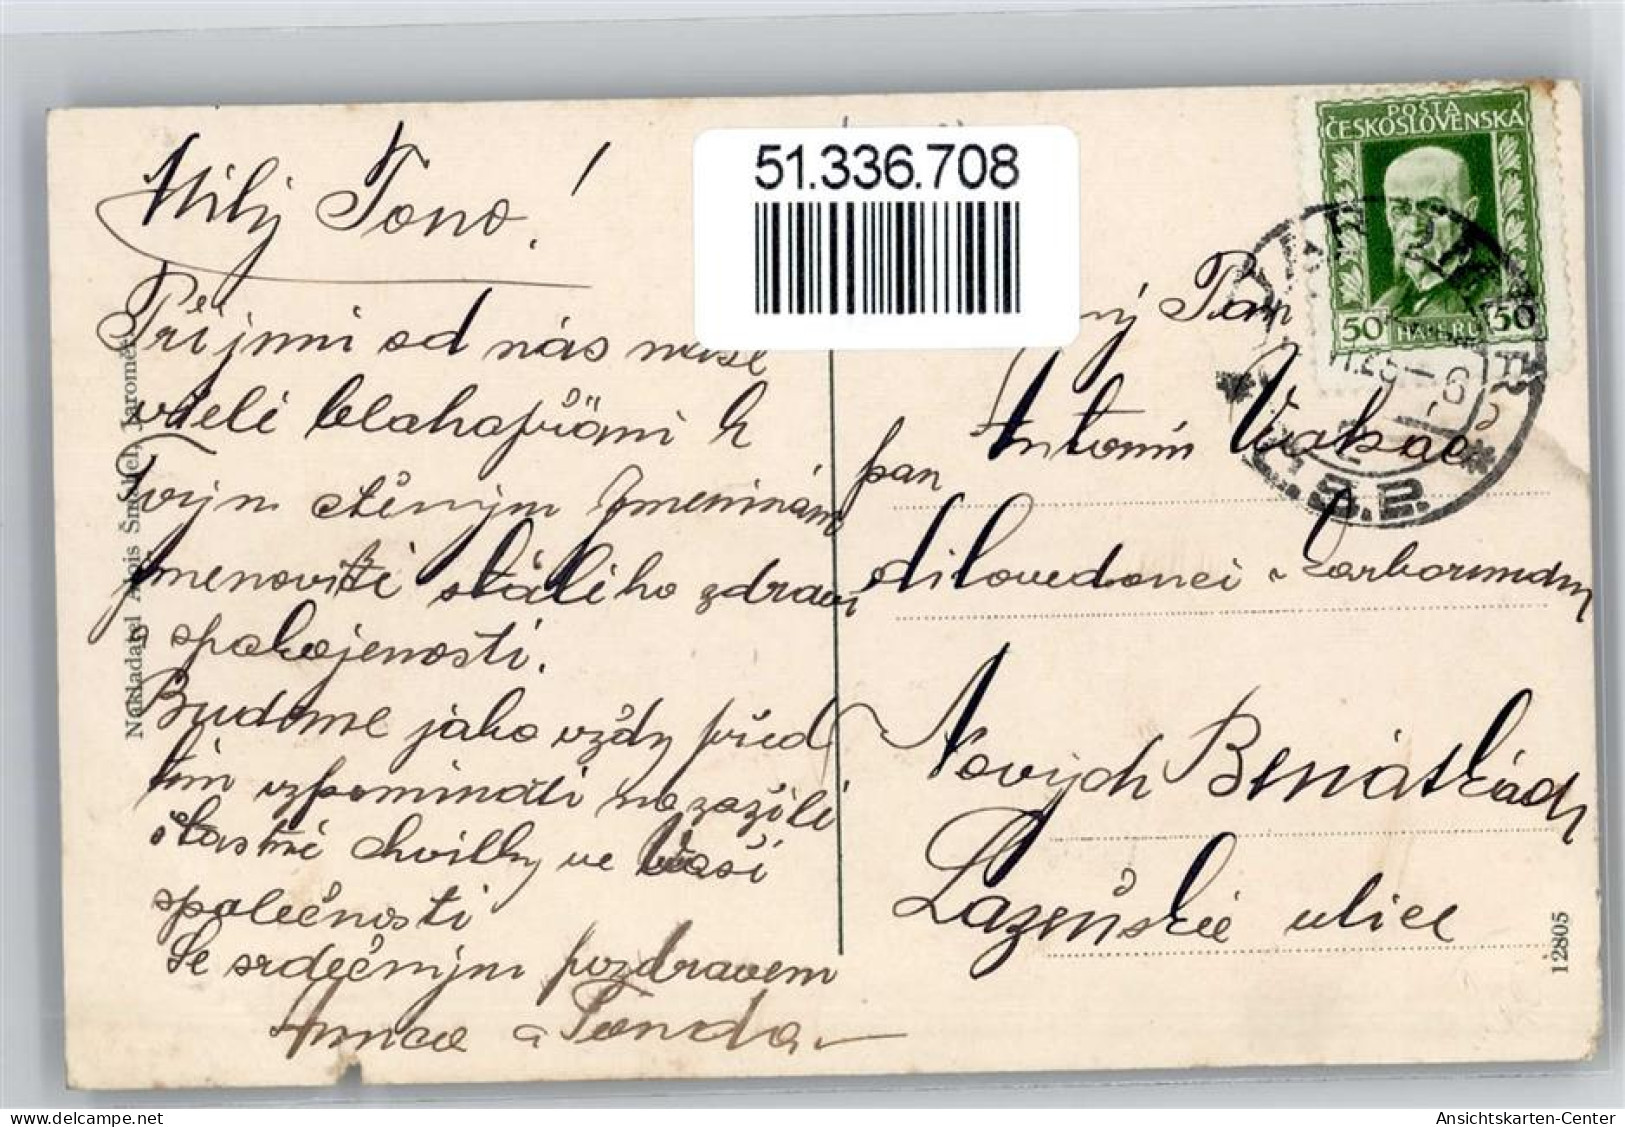 Milý Tono!
Přijmi od nás naše
vřelé blahapřání k
Tvým ctěným Jmeninám
jmenovitě stáliho zdraví
spokojenosti.
Budeme jako vždy před
tím vzpomínati na zažili
šťastné chvilky ve Vaší
společnosti
Se srdečným pozdravem
a Tonda
Nakladatel Alois Šmahel, Jaroměř
51.336.708
POŠTA
ČESKOSLOVENSKÁ
50 HALÉŘŮ 50
ný Pan
Antonín
pan
dílovedoucí v Karborundum
Nových Benátkách
Lázeňské ulice
12805
delcampe.net
Ansichtskarten-Center